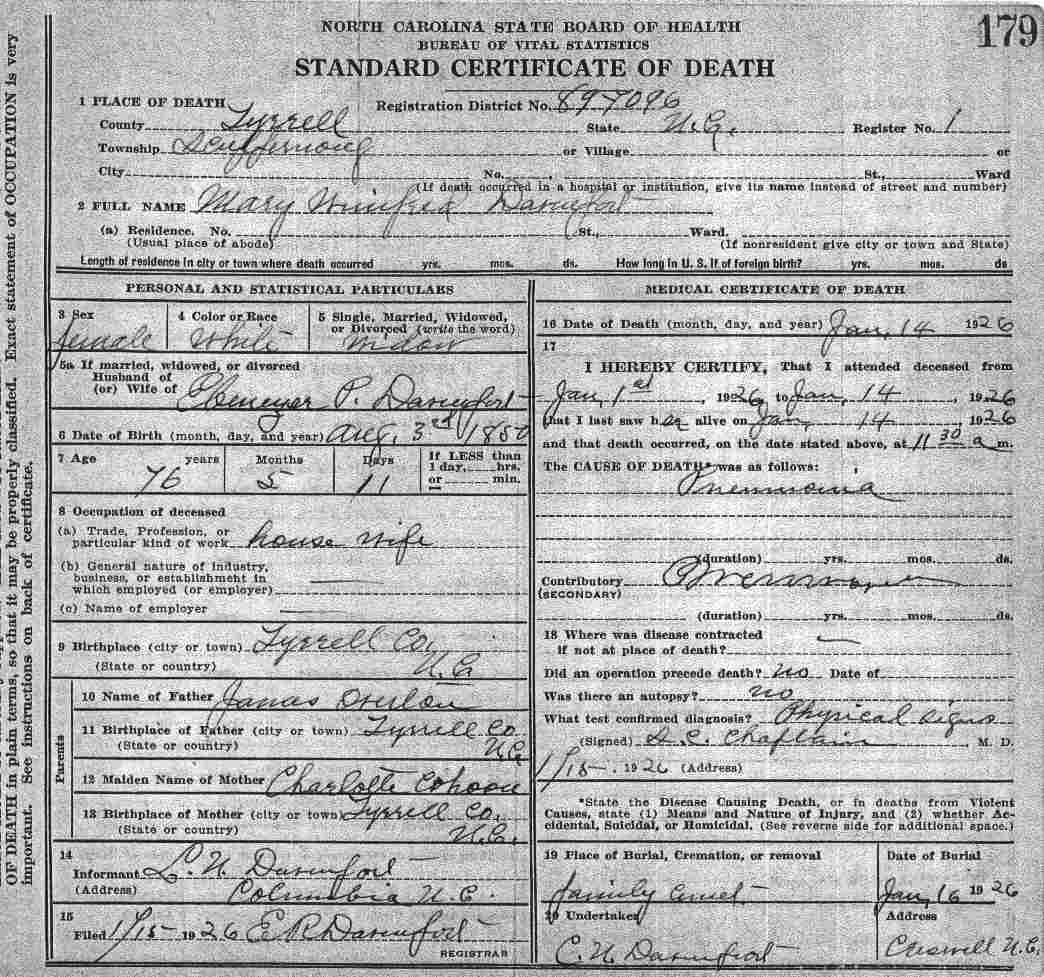 179
NORTH CAROLINA STATE BOARD OF HEALTH
BUREAU OF VITAL STATISTICS
STANDARD CERTIFICATE OF DEATH
1 PLACE OF DEATH
Registration District No. 897096
County Tyrrell State N.C. Register No. 1
Township Scuppernong or Village or
City No. , St., Ward
(If death occurred in a hospital or institution, give its name instead of street and number)
2 FULL NAME Mary Winifred Davenport
(a) Residence. No. St., Ward.
(Usual place of abode) (If nonresident give city or town and State)
Length of residence in city or town where death occurred yrs. mos. ds. How long in U. S. if of foreign birth? yrs. mos. ds
PERSONAL AND STATISTICAL PARTICULARS
3 Sex 4 Color or Race 5 Single, Married, Widowed,
or Divorced (write the word)
female White Widow
5a If married, widowed, or divorced
Husband of
(or) Wife of Ebenezer P. Davenport
6 Date of Birth (month, day, and year) Aug, 3rd 1850
7 Age years Months Days If LESS than
1 day, hrs.
or min.
76 5 11
8 Occupation of deceased
(a) Trade, Profession, or
particular kind of work house wife
(b) General nature of industry,
business, or establishment in
which employed (or employer)
(c) Name of employer
9 Birthplace (city or town) Tyrrell Co,
(State or country) N.C
Parents
10 Name of Father Janas Overton
11 Birthplace of Father (city or town) Tyrrell Co
(State or country) N.C
12 Maiden Name of Mother Charlotte Cohoon
13 Birthplace of Mother (city or town) Tyrrell Co,
(State or country) N.C.
14
Informant L. N. Davenport
(Address) Columbia N.C.
15
Filed 1/15- 1926 E R Davenport
REGISTRAR
MEDICAL CERTIFICATE OF DEATH
16 Date of Death (month, day, and year) Jan, 14 1926
17
I HEREBY CERTIFY, That I attended deceased from
Jan, 1st , 1926, to Jan, 14 , 1926
that I last saw her alive on Jan, 14 1926
and that death occurred, on the date stated above, at 11 30 a m.
The CAUSE OF DEATH* was as follows:
Pneumonia
(duration) yrs. mos. ds.
Contributory
(SECONDARY)
(duration) yrs. mos. ds.
18 Where was disease contracted
if not at place of death?
Did an operation precede death? no Date of
Was there an autopsy? no
What test confirmed diagnosis? Physical signs
(Signed) Chaplain , M. D.
1/15-, 1926 (Address)
*State the Disease Causing Death, or in deaths from Violent
Causes, state (1) Means and Nature of Injury, and (2) whether Ac-
cidental, Suicidal, or Homicidal. (See reverse side for additional space.)
19 Place of Burial, Cremation, or removal Date of Burial
family Jan, 16 1926
20 Undertaker Address
C. N. Davenport Creswell N.C.
OF DEATH in plain terms, so that it may be properly classified. Exact statement of OCCUPATION is very
important. See instructions on back of certificate.